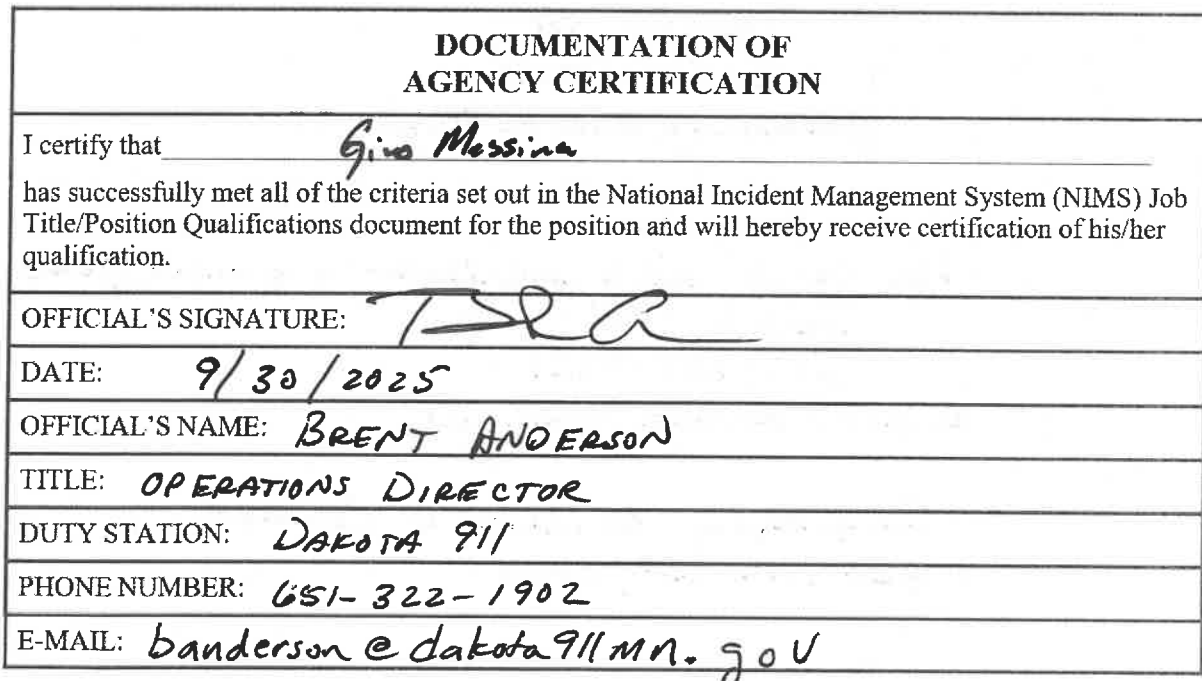 DOCUMENTATION OF
AGENCY CERTIFICATION
I certify that Gino Messina
has successfully met all of the criteria set out in the National Incident Management System (NIMS) Job
Title/Position Qualifications document for the position and will hereby receive certification of his/her
qualification.
OFFICIAL'S SIGNATURE:
DATE: 9/30/2025
OFFICIAL'S NAME: BRENT ANDERSON
TITLE: OPERATIONS DIRECTOR
DUTY STATION: DAKOTA 911
PHONE NUMBER: 651-322-1902
E-MAIL: banderson@dakota911mn.gov